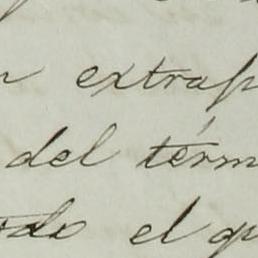 n extrap
del térm
odo el qu